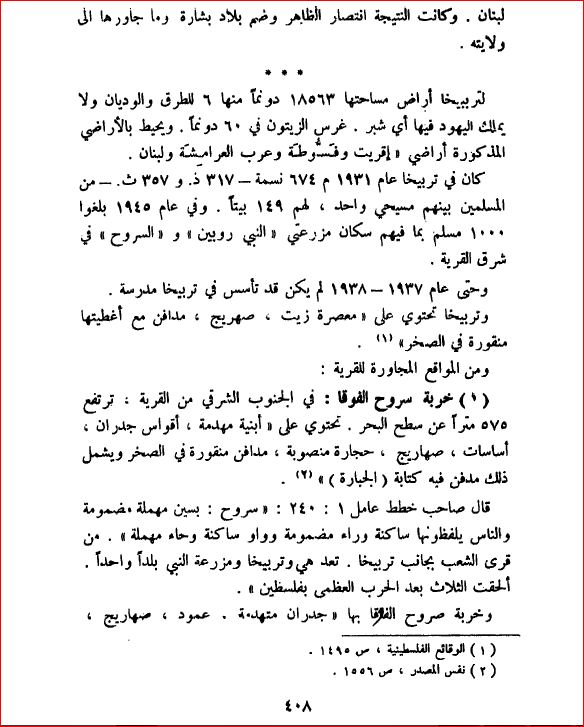 لبنان . وكانت النتيجة انتصار الظاهر وضم بلاد بشارة وما جاورها الى
ولايته .
* * *
لتربيخا أراض مساحتها ١٨٥٦٣ دونماً منها ٦ للطرق والوديان ولا
يملك اليهود فيها أي شبر . غرس الزيتون في ٦٠ دونماً . ويحيط بالأراضي
المذكورة أراضي « إقريت وفسُّوطة وعرب العرامشة ولبنان .
كان في تربيخا عام ١٩٣١ م ٦٧٤ نسمة – ٣١٧ ذ. و ٣٥٧ ث. – من
المسلمين بينهم مسيحي واحد ، لهم ١٤٩ بيتاً . وفي عام ١٩٤٥ بلغوا
١٠٠٠ مسلم بما فيهم سكان مزرعتي « النبي روبين » و « السروح » في
شرق القرية .
وحتى عام ١٩٣٧ – ١٩٣٨ لم يكن قد تأسس في تربيخا مدرسة .
وتربيخا تحتوي على « معصرة زيت ، صهريج ، مدافن مع أغطيتها
منقورة في الصخر» (١) .
ومن المواقع المجاورة للقرية :
(١) خربة سروح الفوقا : في الجنوب الشرقي من القرية ، ترتفع
٥٧٥ متراً عن سطح البحر . تحتوي على « أبنية مهدمة ، أقواس جدران ،
أساسات ، صهاريج ، حجارة منصوبة ، مدافن منقورة في الصخر ويشمل
ذلك مدفن فيه كتابة ( الجبارة ) » (٢) .
قال صاحب خطط عامل ١ : ٢٤٠ : « سروح : بسين مهملة مضمومة
والناس يلفظونها ساكنة وراء مضمومة وواو ساكنة وحاء مهملة » . من
قرى الشعب بجانب تربيخا . تعد هي وتربيخا ومزرعة النبي بلداً واحداً .
ألحقت الثلاث بعد الحرب العظمى بفلسطين » .
وخربة صروح الفوقا بها « جدران متهدمة . عمود ، صهاريج ،
(١) الوقائع الفلسطينية ، ص ١٤٩٥ .
(٢) نفس المصدر ، ص ١٥٥٦ .
٤٠٨